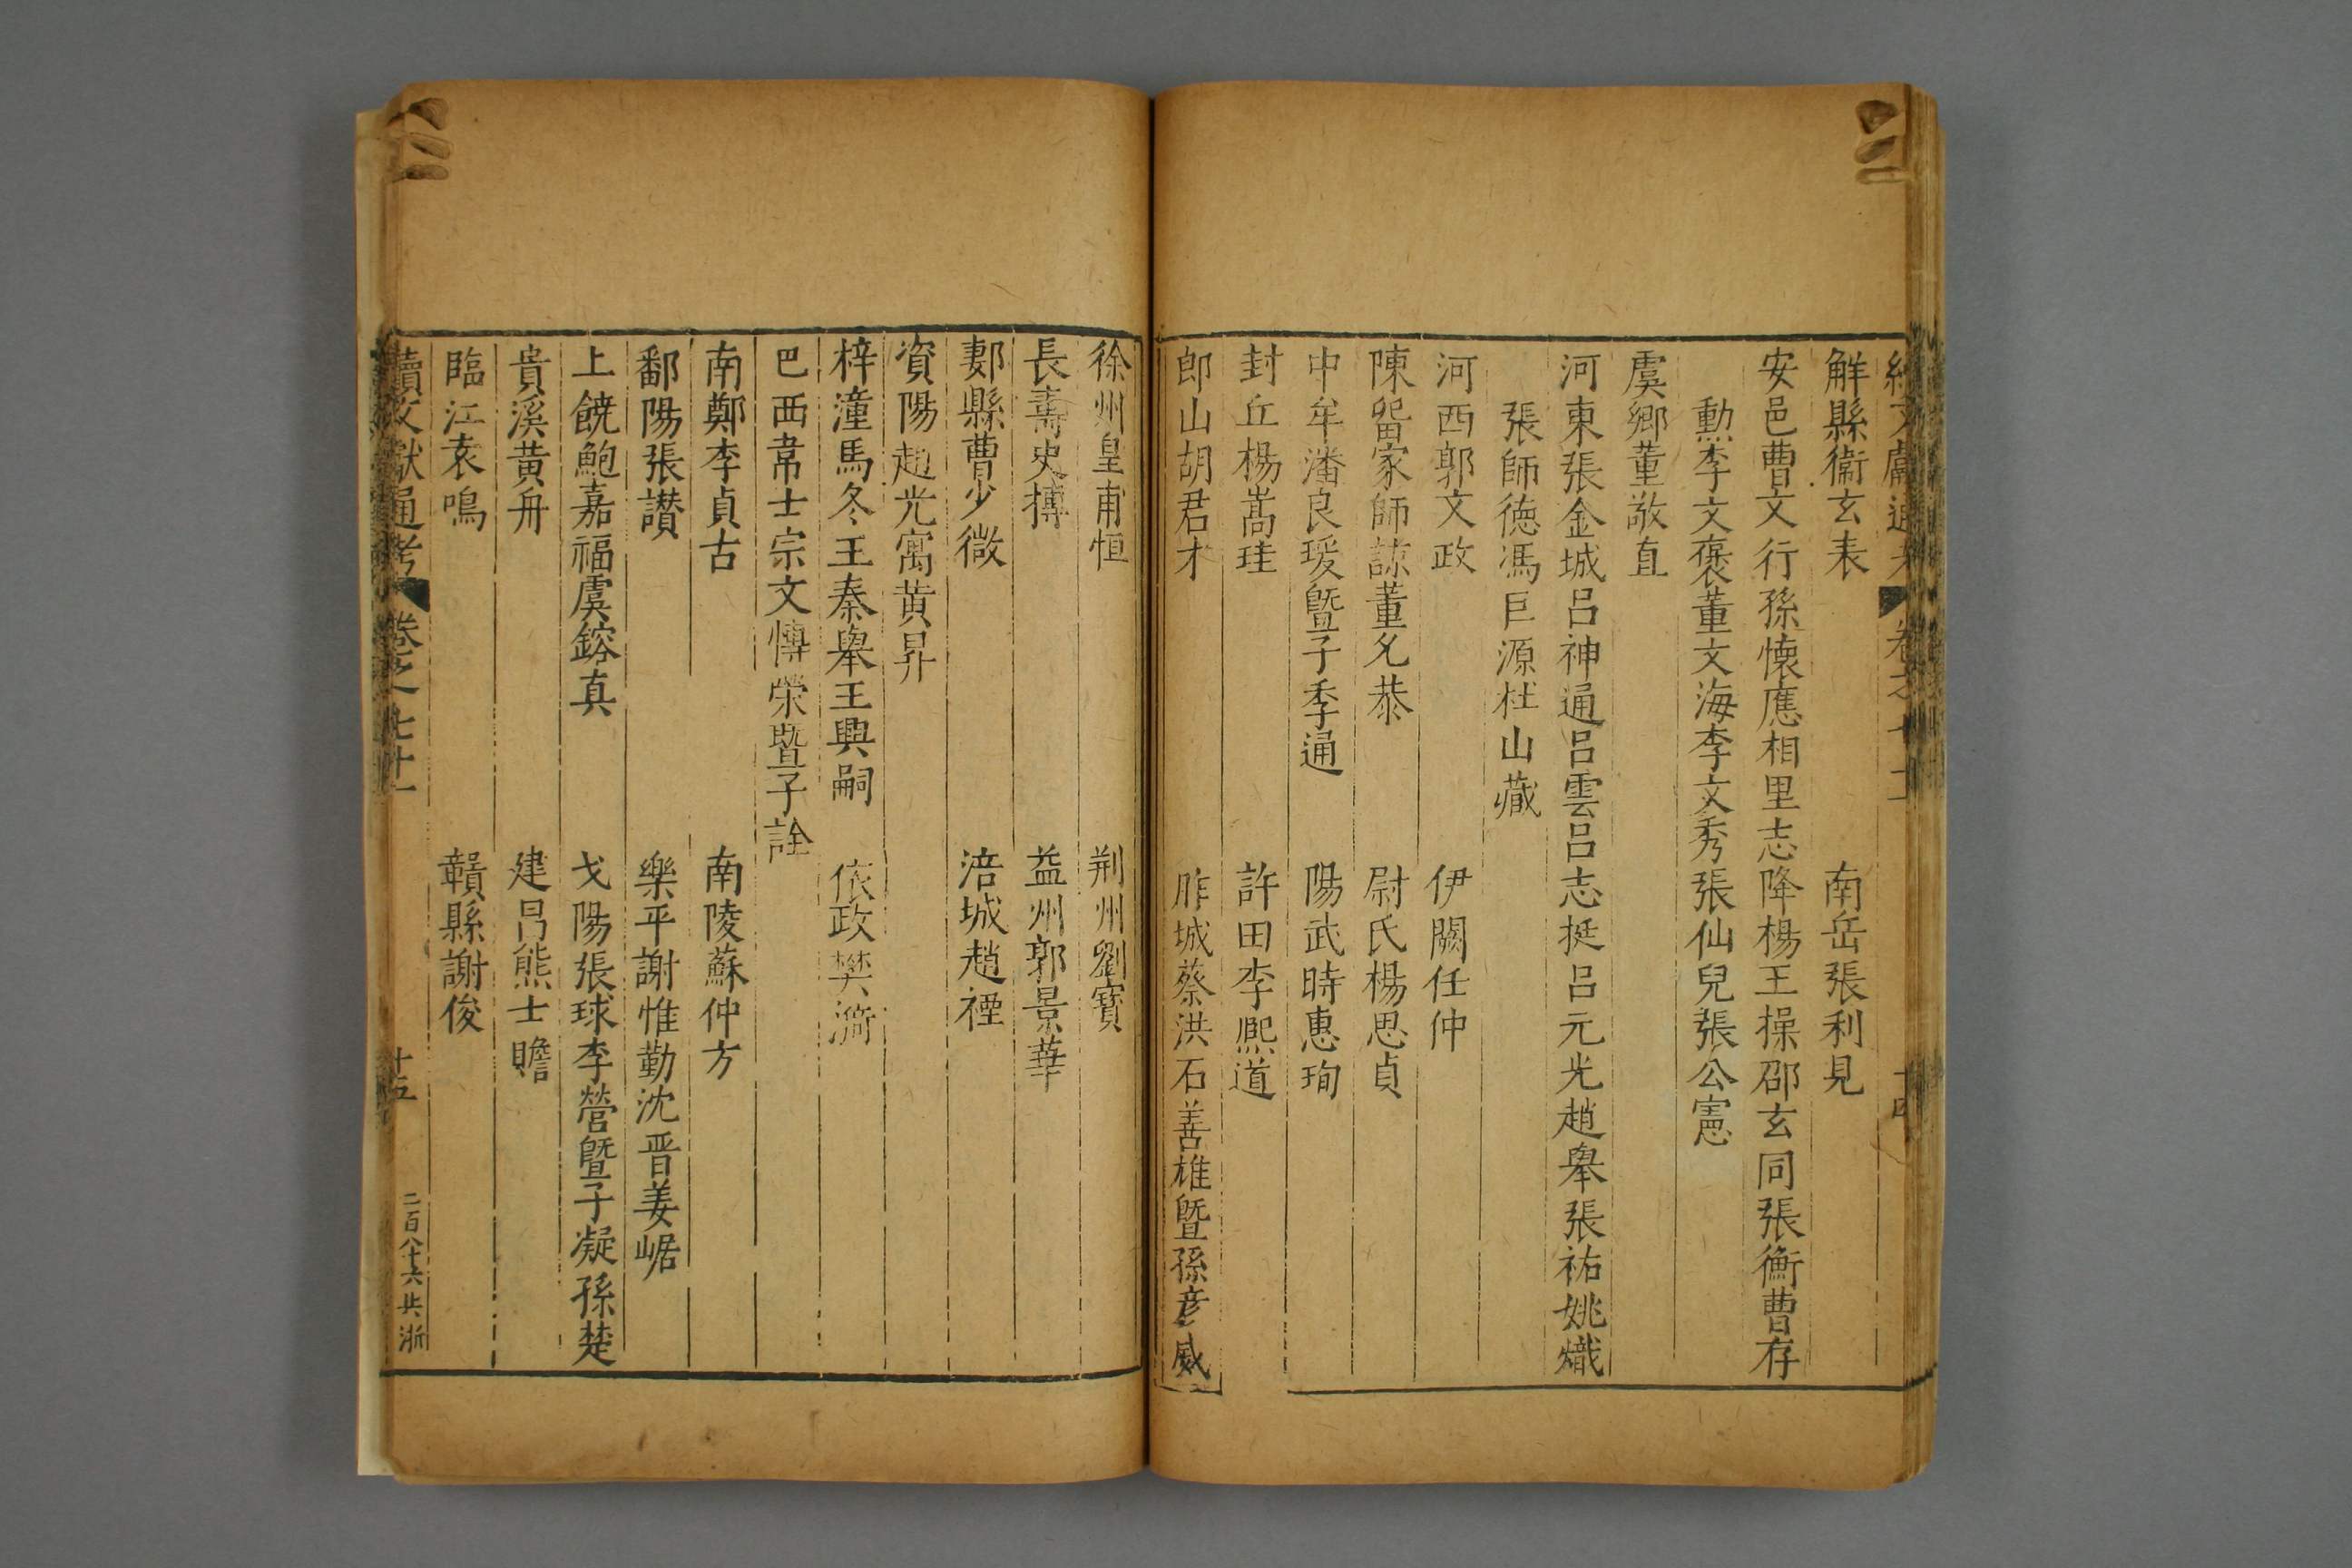 解縣衞玄表　南岳張利見
安邑曹文行孫懷應相里志降楊王操邵玄同張衡曹存
勲李文褒董文海李文秀張仙兒張公憲
虞鄉董敬直
河東張金城呂神通呂雲呂志挺呂元光趙舉張祐姚熾
張師徳馮巨源杜山藏
河西郭文政　伊闕任仲
陳留家師諒董允恭　尉氏楊思貞
中牟潘良瑗暨子季通　陽武時惠珣
封丘楊嵩珪　許田李熈道
郎山胡君才　胙城蔡洪石善雄暨孫彥威
徐州皇甫恒　荆州劉寳
長壽史摶　益州郭景華
郪縣曹少微　涪城趙禋
資陽趙光寓黄昇
梓潼馬冬王秦舉王興嗣　依政樊漪
巴西韋士宗文慱榮暨子詮
南鄭李貞古　南陵蘇仲方
鄱陽張讃　樂平謝惟勤沈晋姜崌
上饒鮑嘉福虞鎔真　戈陽張球李營暨子凝孫楚
貴溪黄舟　建昌熊士贍
臨江袁鳴　贛縣謝俊
續文獻通考　卷之七十一　十五　二百八十六 浙